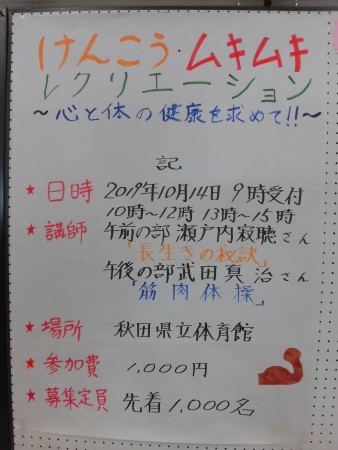 けんこう・ムキムキ
レクリエーション
～心と体の健康を求めて!!～
記
★日時 2019年10月14日 9時受付
10時～12時 13時～15時
★講師 午前の部 瀬戸内寂聴さん
「長生きの秘訣」
午後の部 武田真治さん
「筋肉体操」
★場所 秋田県立体育館
★参加費 1,000円
★募集定員 先着1,000名